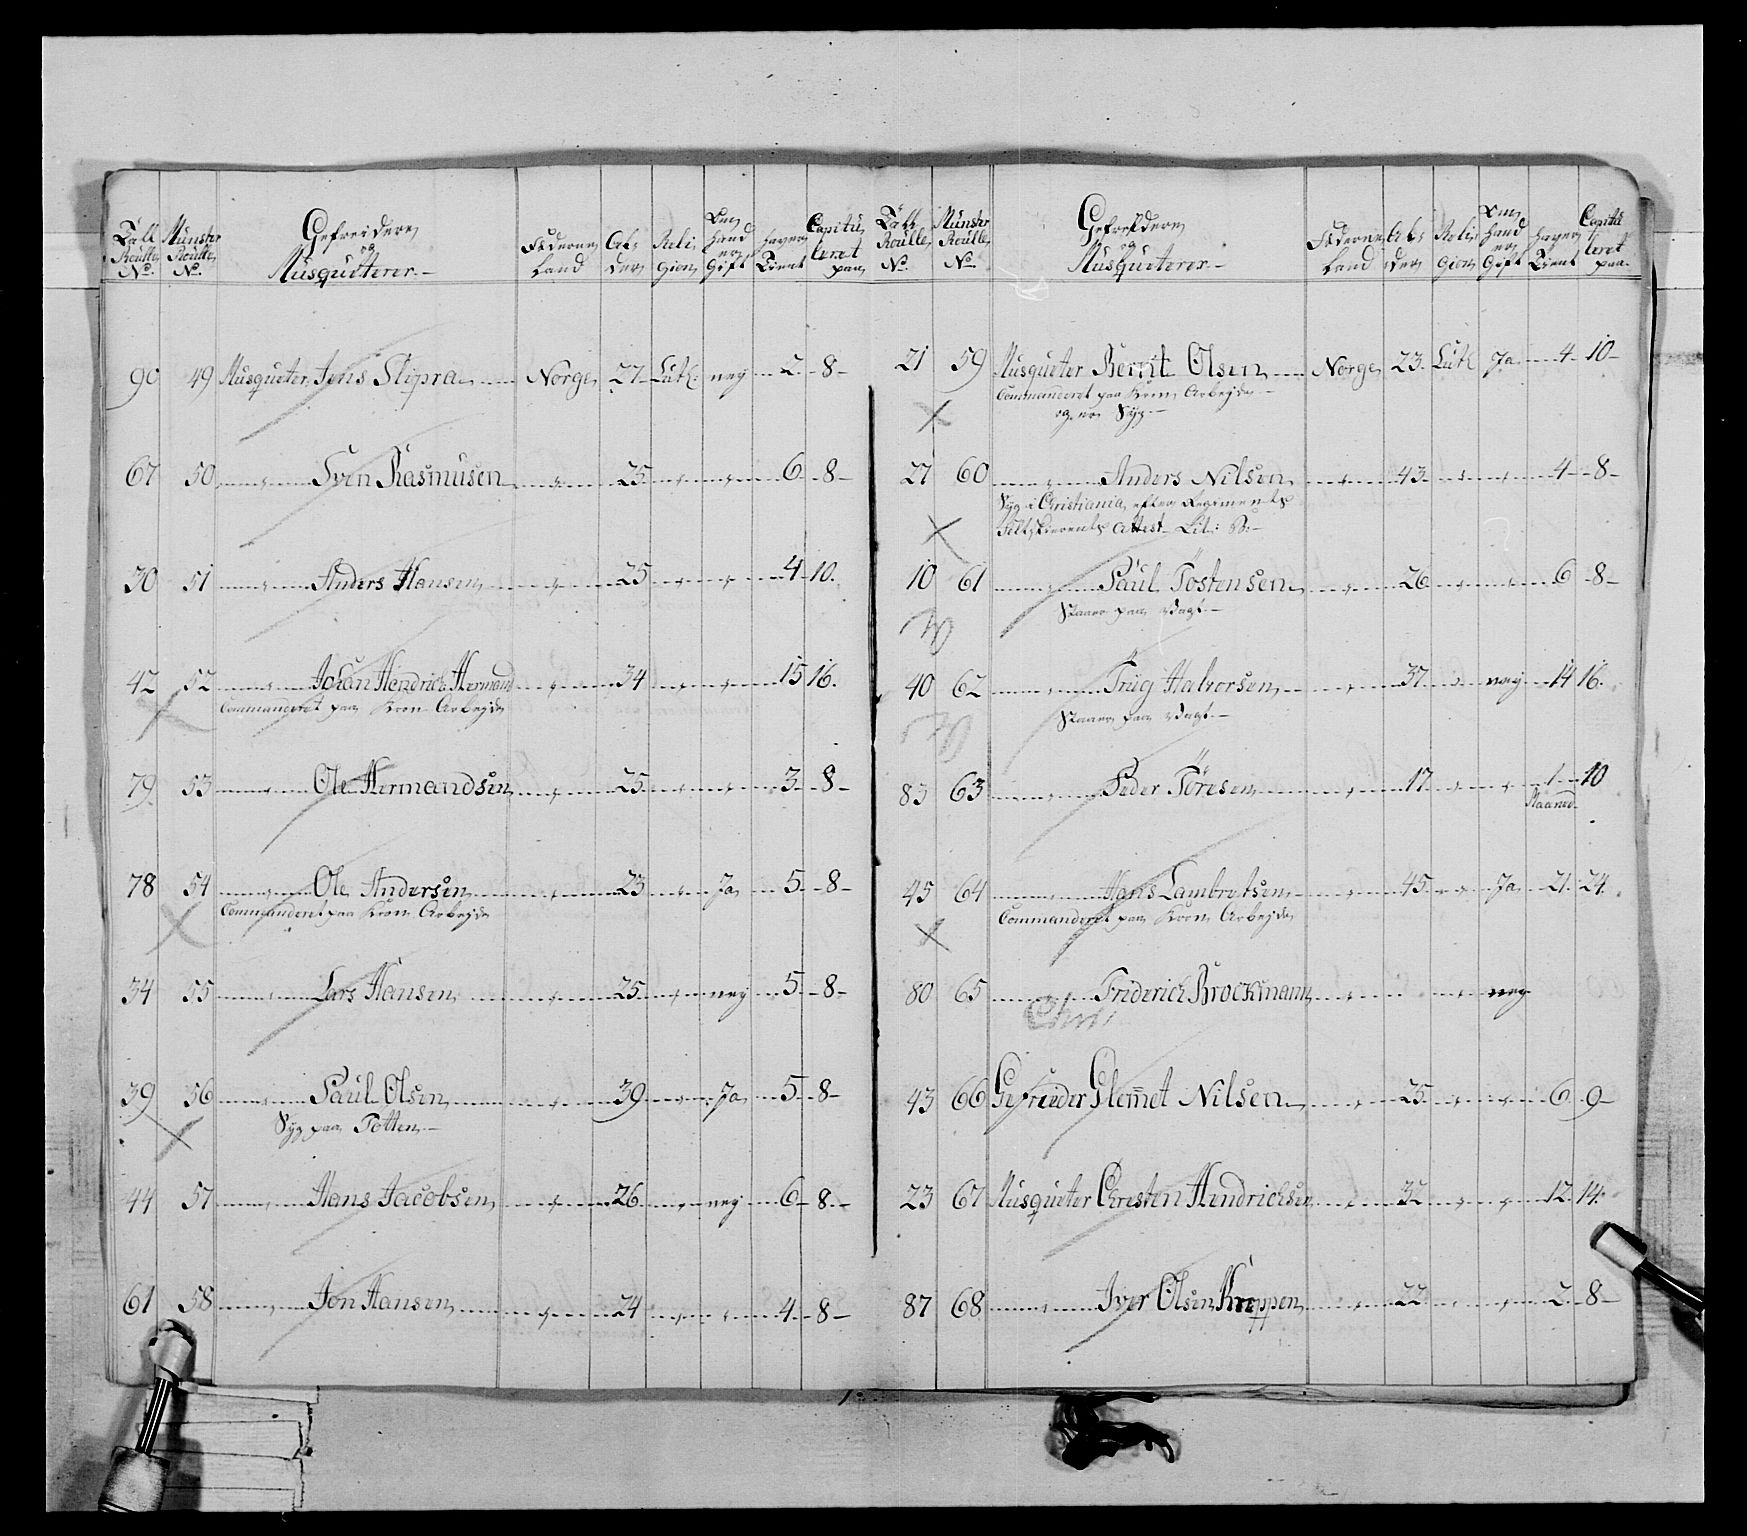 Tall Roulle No. Münster Roulle No. Gefreidere og Musqueterer Fæderne Land Al- der Reli- gion Om hand er Gift haver Tient Capitu- leret paa
90 49 Musqueter Jens Slipra Norge 27 Luth: ney 2 8
67 50 " Sven Rasmusen " 25 " " 6 8
30 51 " Anders Hansen " 25 " " 4 10
42 52 " Johan Hendrich Hermand " 34 " " 15 16
Commanderet paa Kron Arbejde
79 53 " Ole Hermandsen " 25 " " 3 8
78 54 " Ole Andersen " 23 " Ja 5 8
Commanderet paa Kron Arbejde
34 55 " Lars Hansen " 25 " ney 5 8
39 56 " Paul Olsen " 39 " Ja 5 8
Syg paa Totten
44 57 " Hans Jacobsen " 26 " ney 6 8
61 58 " Jon Hansen " 24 " " 4 8
Tall Roulle No. Münster Roulle No. Gefreidere og Musqueterer Fæderne Land Al- der Reli- gion Om hand er Gift haver Tient Capitu- leret paa
21 59 Musqueter Bernt Olsen Norge 23 Luth Ja 4 10
Commanderet paa Kron Arbejde
og er Syg
27 60 " Anders Nilsen " 43 " " 4 8
Syg i Christiania, efter Regiments
Feltskierents Attest Lit: B:
10 61 " Paul Tostensen " 26 " " 6 8
Staaer paa Vagt
40 62 " Trug Halvorsen " 37 " ney 14 16
Staaer paa Vagt
83 63 " Peder Töresen " 17 " " 1 10
Maaned
45 64 " Hans Lambretsen " 45 " Ja 21 24
Commanderet paa Kron Arbejde
80 65 " Friderich Brockmann " " ney
43 66 Gefreider Glem̅et Nilsen " 25 " " 6 9
23 67 Musqueter Chresten Hendrichsen " 32 " " 12 14
87 68 " Iver Olsen Kreppen " 22 " " 2 8